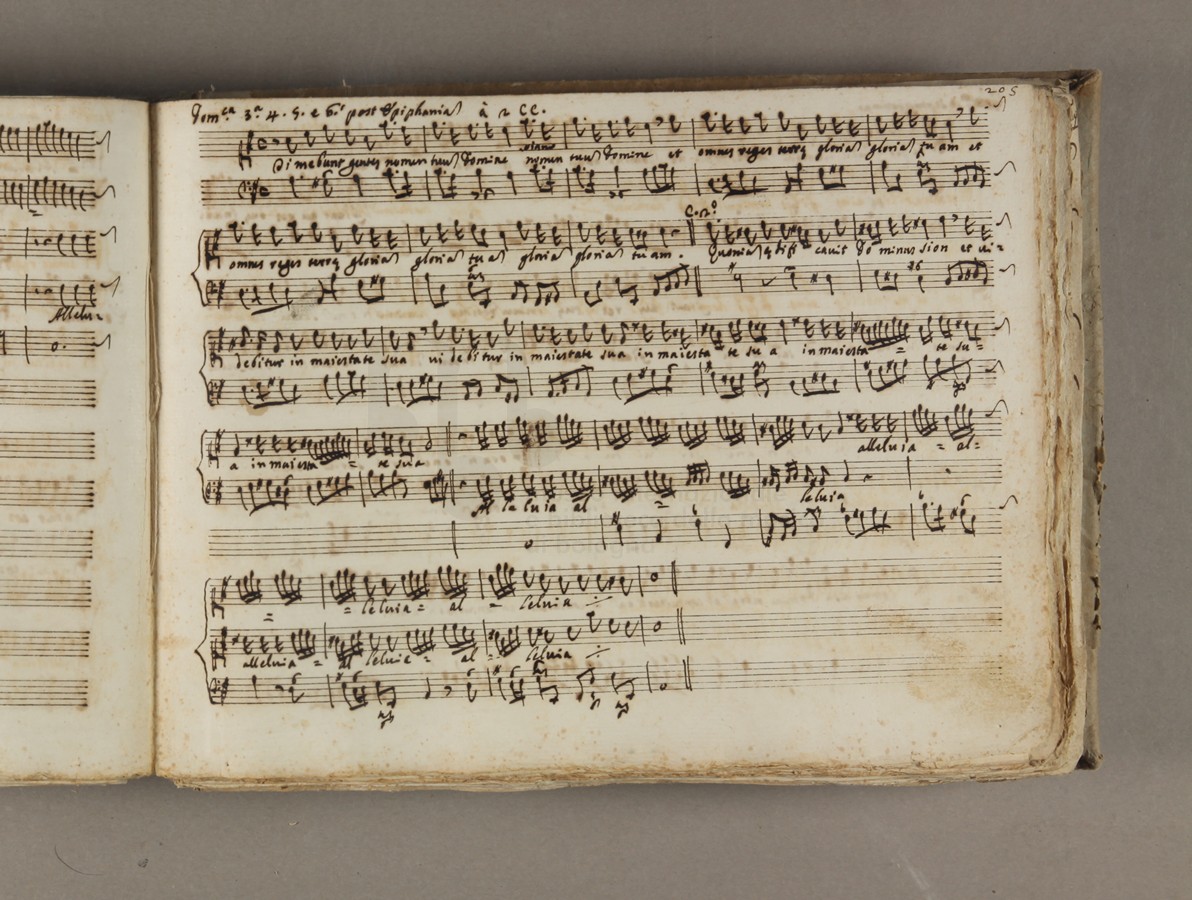 Allelu=
205
Dom.ca 3.a 4. 5. e 6.a post Epiphaniã à 2 CC.
piano
Timebunt gentes nomen tuũ Domine nomen tuũ Domine et omnes reges terrę gloriã gloriã tuam et
C. 2.o
omnes reges terrę gloriã gloriã tuã gloriã gloriã tuam. Quoniã ędifi cavit Dominus sion et vi=
debitur in maiestate sua videbitur in maiestate sua in maiesta te sua in maiesta = te su=
a in maiesta = te sua alleluia = al=
Al le lu ia al = leluia
= = leluia = al = leluia
alleluia = al leluia = al = leluia